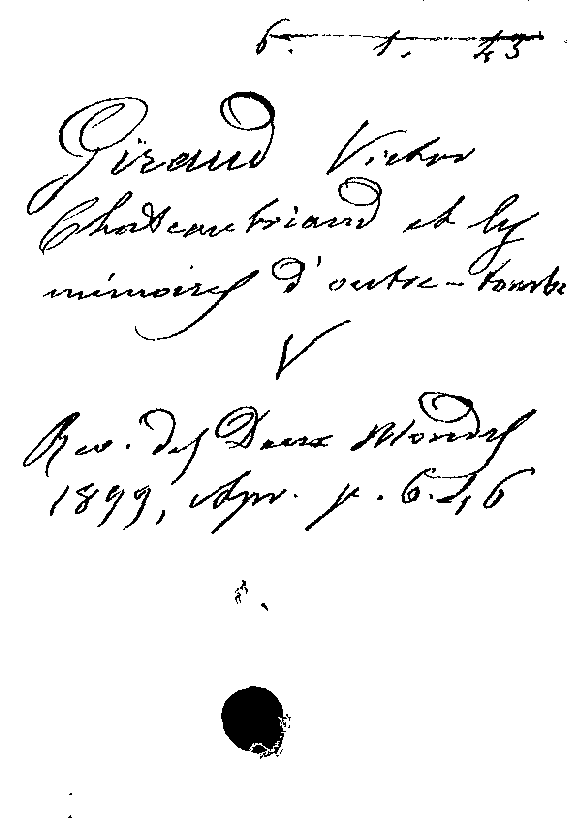 6. 1. 43
Giraud Victor
Chateaubriand et les
mémoires d'outre-tombe
V
Rev. des Deux Mondes
1899, Apr. p. 6